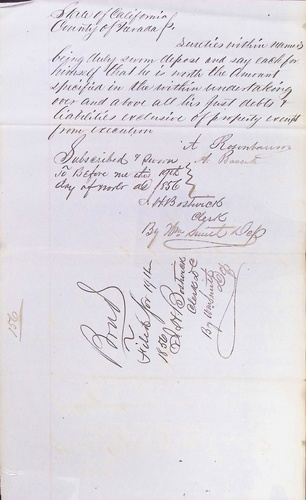 State of California
County of Nevada } ss
Sureties within named
being duly sworn depose and say each for
himself that he is worth the Amount
specified in the within undertaking
over and above all his just debts &
liabilities exclusive of property exempt
from execution
A Rosenbaum
Subscribed & Sworn
To Before me this 19th
day of AD 1856
J H Bostwick
Clerk
By Wm Smith Dep
Bond
Filed Nov 19th
1856
J H Bostwick
Clerk D C
By Wm Smith
Dep
156